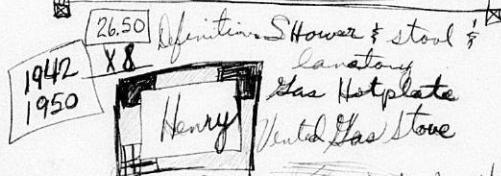 26.50
X 8
1942
1950
Definitions Shower & stool &
lavatory
Gas Hotplate
Henry
Vented Gas Stove